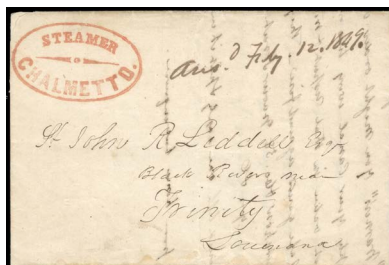 STEAMER
CHALMETTO.
Ans.d Feby. 12. 1849.
St John R Liddell Esq
Black River near
Trinity
Louisiana